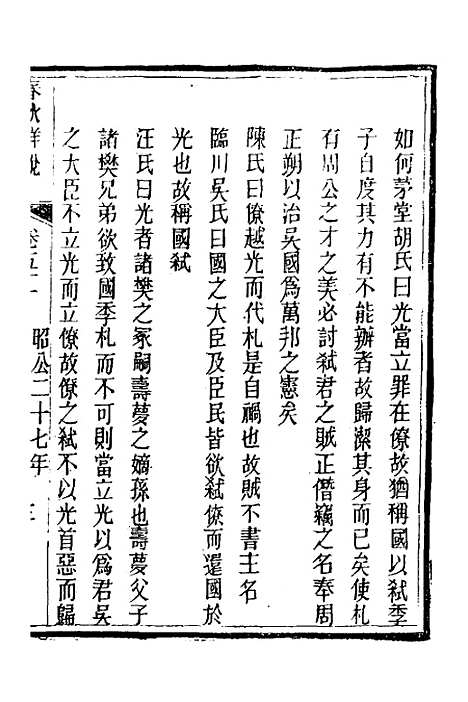 如何茅堂胡氏曰光當立罪在僚故猶稱國以弑季
子自度其力有不能辦者故歸潔其身而已矣使札
有周公之才之美必討弑君之賊正僭竊之名奉周
正朔以治吳國爲萬邦之憲矣
陳氏曰僚越光而代札是自禍也故賊不書主名
臨川吳氏曰國之大臣及臣民皆欲弑僚而還國於
光也故稱國弑
汪氏曰光者諸樊之冢嗣壽夢之嫡孫也壽夢父子
諸樊兄弟欲致國季札而不可則當立光以爲君吳
之大臣不立光而立僚故僚之弑不以光首惡而歸
春秋詳說 卷五 昭公二十七年